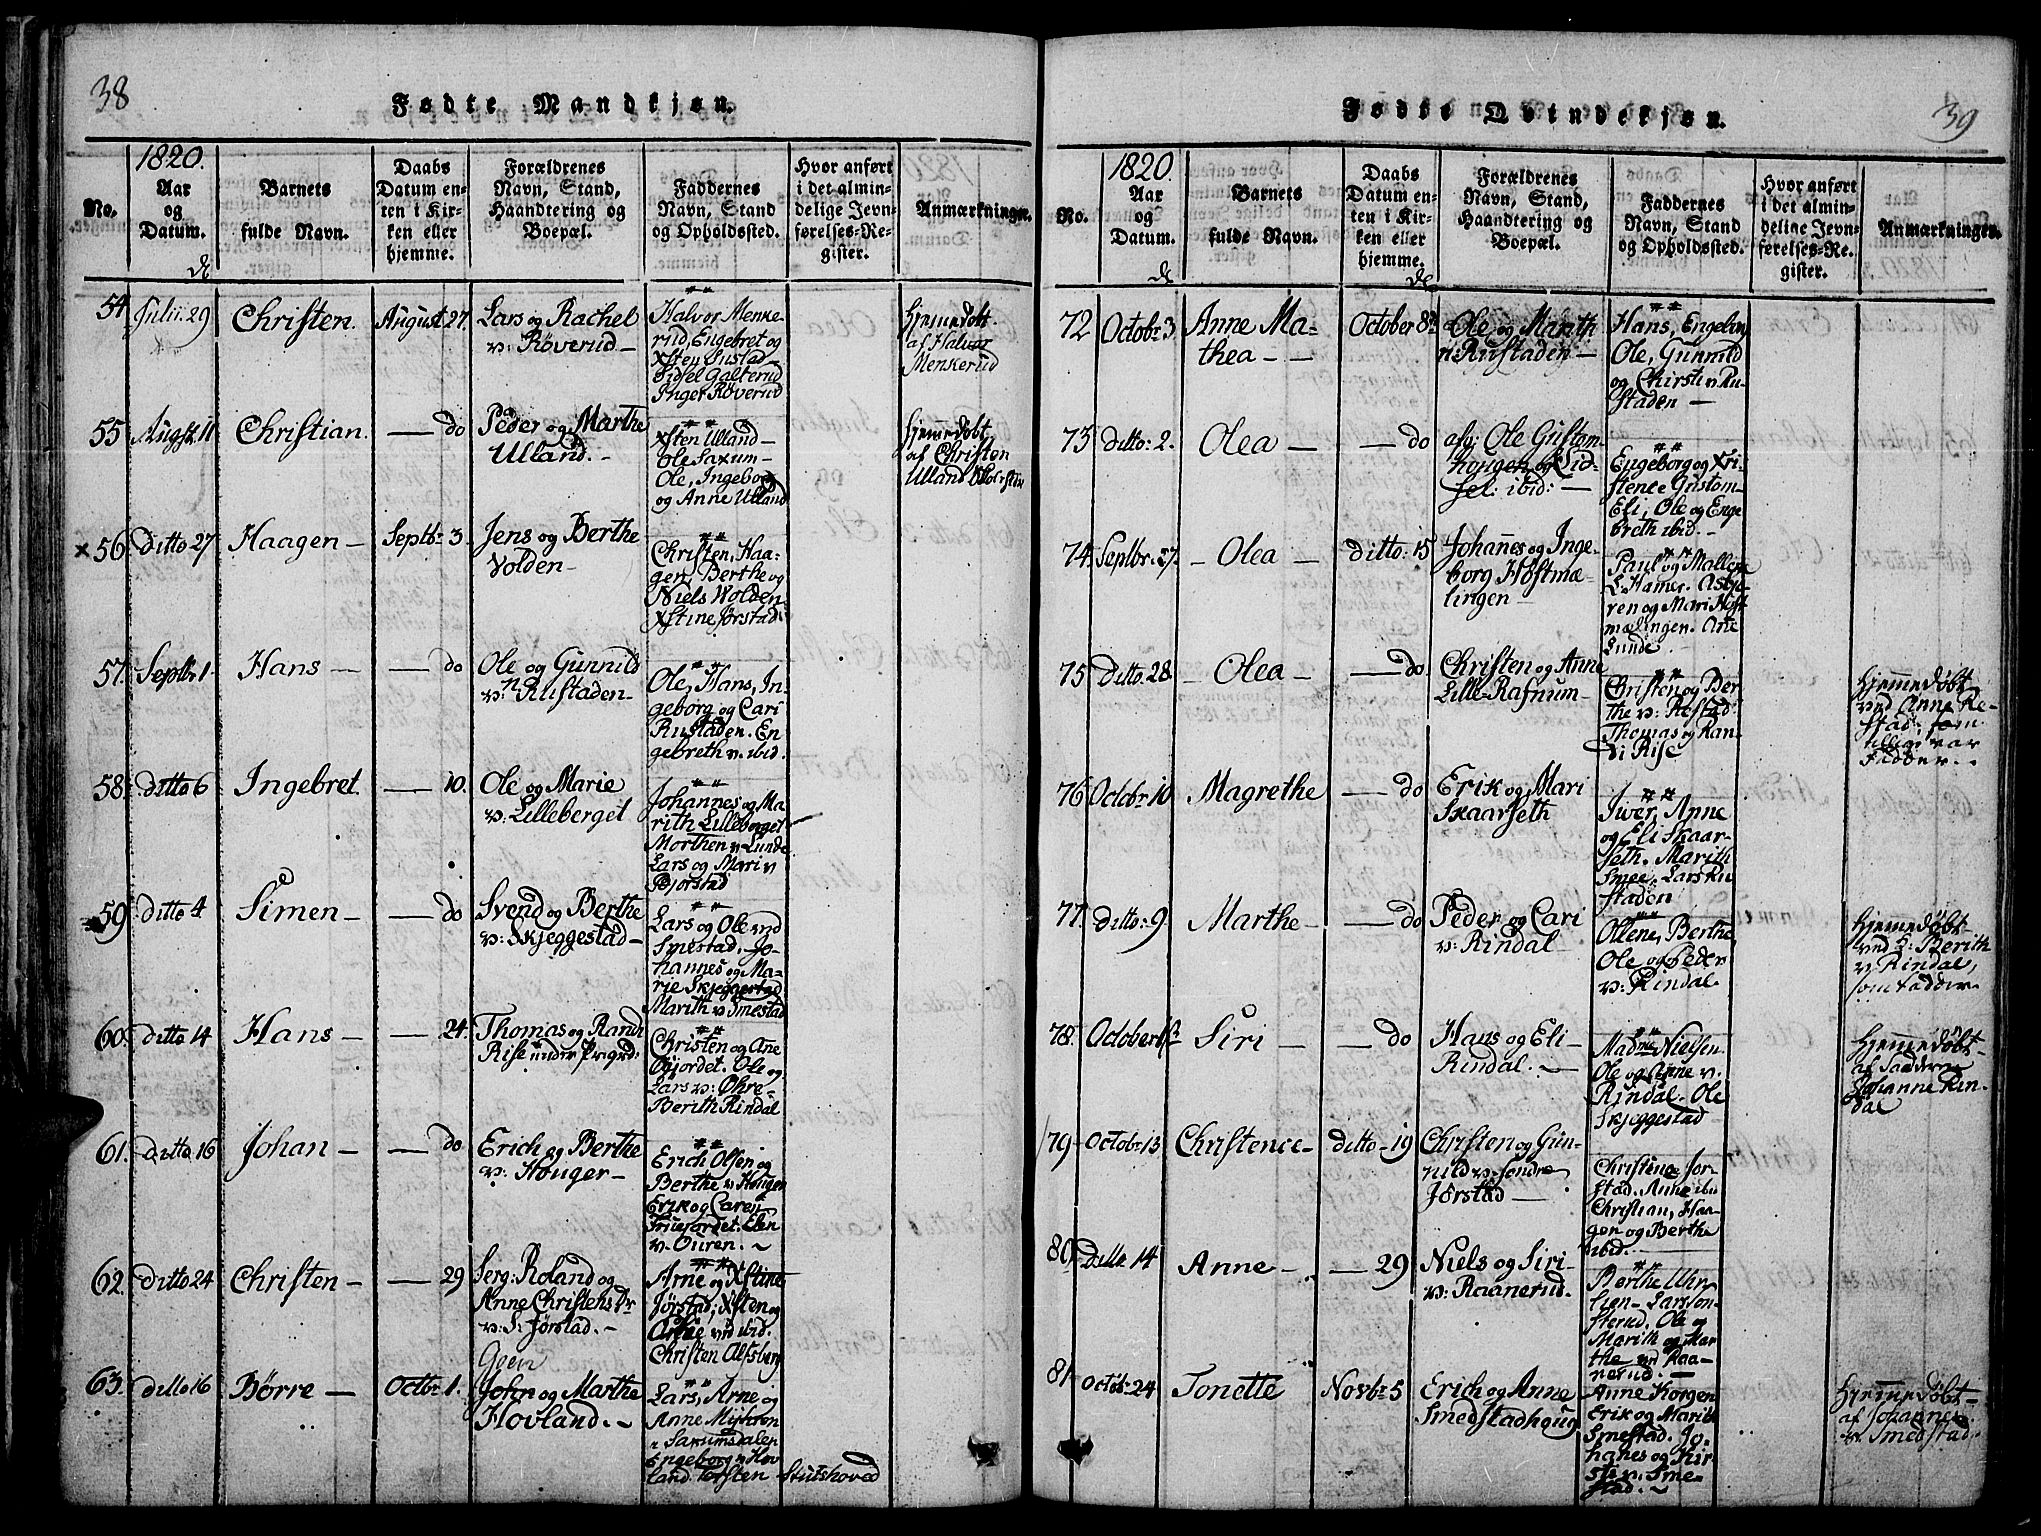 38
Fødte Mandkjøn.
1820.
No.
Aar
og
Datum.
Barnets
fulde Navn.
Daabs
Datum en-
ten i Kir-
ken eller
hjemme.
Forældrenes
Navn, Stand,
Haandtering og
Boepæl.
Faddernes
Navn, Stand
og Opholdssted.
Hvor anført
i det almin-
delige Jevn-
førelses-Re-
gister.
Anmærkninger.
54
Julii 29
Christen.
August 27.
Lars og Rachel
v: Røverud —
Halvor Menke-
rud, Engebret og
Xsten Gustad —
Sidsel Galterud
Inger Røverud
Hjemmedøbt
af Halvor
Menkerud
55
Augst. 11
Christian.
— do
Peder og Marthe
Ulland. —
Xsten Ulland —
Ole Saxum —
Ole, Ingeborg
og Anne Ulland
hjemedøbt
af Christen
Ulland
x 56
ditto 27
Haagen —
Septbr. 3.
Jens og Berthe
Volden —
Christen, Haa-
gen, Berthe og
Niels Wolden
Xstine Jørstad
57.
Septbr. 1.
Hans —
— do
Ole og Gunnild
v: Rustaden —
Ole, Hans, In-
geborg og Cari
Rustaden. En-
gebreth v. ibid.
58.
ditto 6
Ingebret.
— 10.
Ole og Marie
v: Lilleberget
Johannes og Ma-
rith Lilleberget
Morthen v. Lunde
Lars og Mari v
Bjørstad
59
ditto 4
Simen —
— do
Svend og Berthe
v: Skjeggestad —
Lars og Ole vnd
Smestad. Jo-
hannes og Ma-
rie Skjeggestad
Marith v. Smestad
60.
ditto 14
Hans —
— 24.
Thomas og Randi
Rise under Prægrd.
Christen og Ane
Øgjordet. Ole og
Lars v: Øhre-
Berith Rindal
61.
ditto 16
Johan —
— do
Erich og Berthe
v: Houger —
Erich Olsen og
Berthe v. Hougen
Erik og Caren
Fruejordet. Elen
v. Ouren. ~
62.
ditto 24
Christen —
— 29
Serg: Roland og
Anne Christens Dr
v: S: Jørstad. —
Arne og Xstine
Jørstad; Xsten og
vd ibid.
Christen Alfsberg
63.
ditto 16
Børre —
Octbr. 1.
Goen
John og Marthe
Hovland. ~
Lars, Arne og
Anne
v Saxumsdalen
Engeborg v Hov-
land. Torsten Stutshoved
39
Fødte Qvindekjøn.
1820.
No.
Aar
og
Datum.
Barnets
fulde Navn.
Daabs
Datum en-
ten i Kir-
ken eller
hjemme.
Forældrenes
Navn, Stand,
Haandtering og
Boepæl.
Faddernes
Navn, Stand
og Opholdssted.
Hvor anført
i det almin-
delige Jevn-
førelses-Re-
gister.
Anmærkninger.
72
Octobr. 3
Anne Ma-
thea — —
October 8de
Ole og Marith
n: Rustaden —
Hans, Engebr
Ole, Gunnild
og Chirstin Ru-
staden —
73
ditto: 2.
Olea —
— do
afg: Ole Gustom-
hougen og Sid-
sel: ibid: —
Engeborg og Xri-
stence Gustom-
Eli, Ole og Enge-
breth ibid. —
74
Septbr. 27.
— Olea —
ditto: 15
Johannes og Inge-
borg Høstmæ-
lingen —
Paul og Mallene
L. Hamer. Asbjø-
ren og Mari Høst-
mælingen. Arne
Lunde.
75
Ditto 28
— Olea —
— do
Christen og Anne
Lille-Rafnum —
Christen og Ber-
the v: Restad
Thomas og Ran-
di Rise
hjemmedøbt
ved Anne Re-
stad, som
tillige var
Fadder..
76
Octobr. 10
Magrethe
— do
Erik og Mari
Skaarseth
Iver, Anne
og Eli Skaar-
seth. Marith
Smee. Lars Ru-
staden
77.
ditto: 9.
Marthe —
— do
Peder og Cari
v: Rindal —
Ollene, Berthe
Ole og Peder
v: Rindal.
hjemedøbt
ved J: Berith
v. Rindal,
som Fadder.
78.
October 12
Siri —
— do
Hans og Eli
Rindal. —
Madme Nielsen
Ole og Anne v.
Rindal. Ole
Skjeggestad
hjemmedøbt
af Fadderne
Johanne Rin-
dal
79
Octobr. 13
Christence —
ditto 19
Christen og Gun-
nild v: Søndre
Jørstad —
Christine Jør-
stad. Anne ibid
Christian, Haa-
gen og Berthe
ibid.
80.
ditto 14
Anne —
— 29
Niels og Siri
v: Raanerud.
Berthe Uhr-
lien — Lars Son-
sterud, Ole og
Marith og Mar-
the vd Raa-
nerud. —
81
Octobr. 24
Tonette
Novbr. 5
Erich og Anne
Smedstadhoug.
Anne Horgen
Erik og Marith
Smestad. Jo-
hanes og Kir-
sten v. Sme-
stad. ~
hjemmedøbt
af Johannes
v. Smedstad.